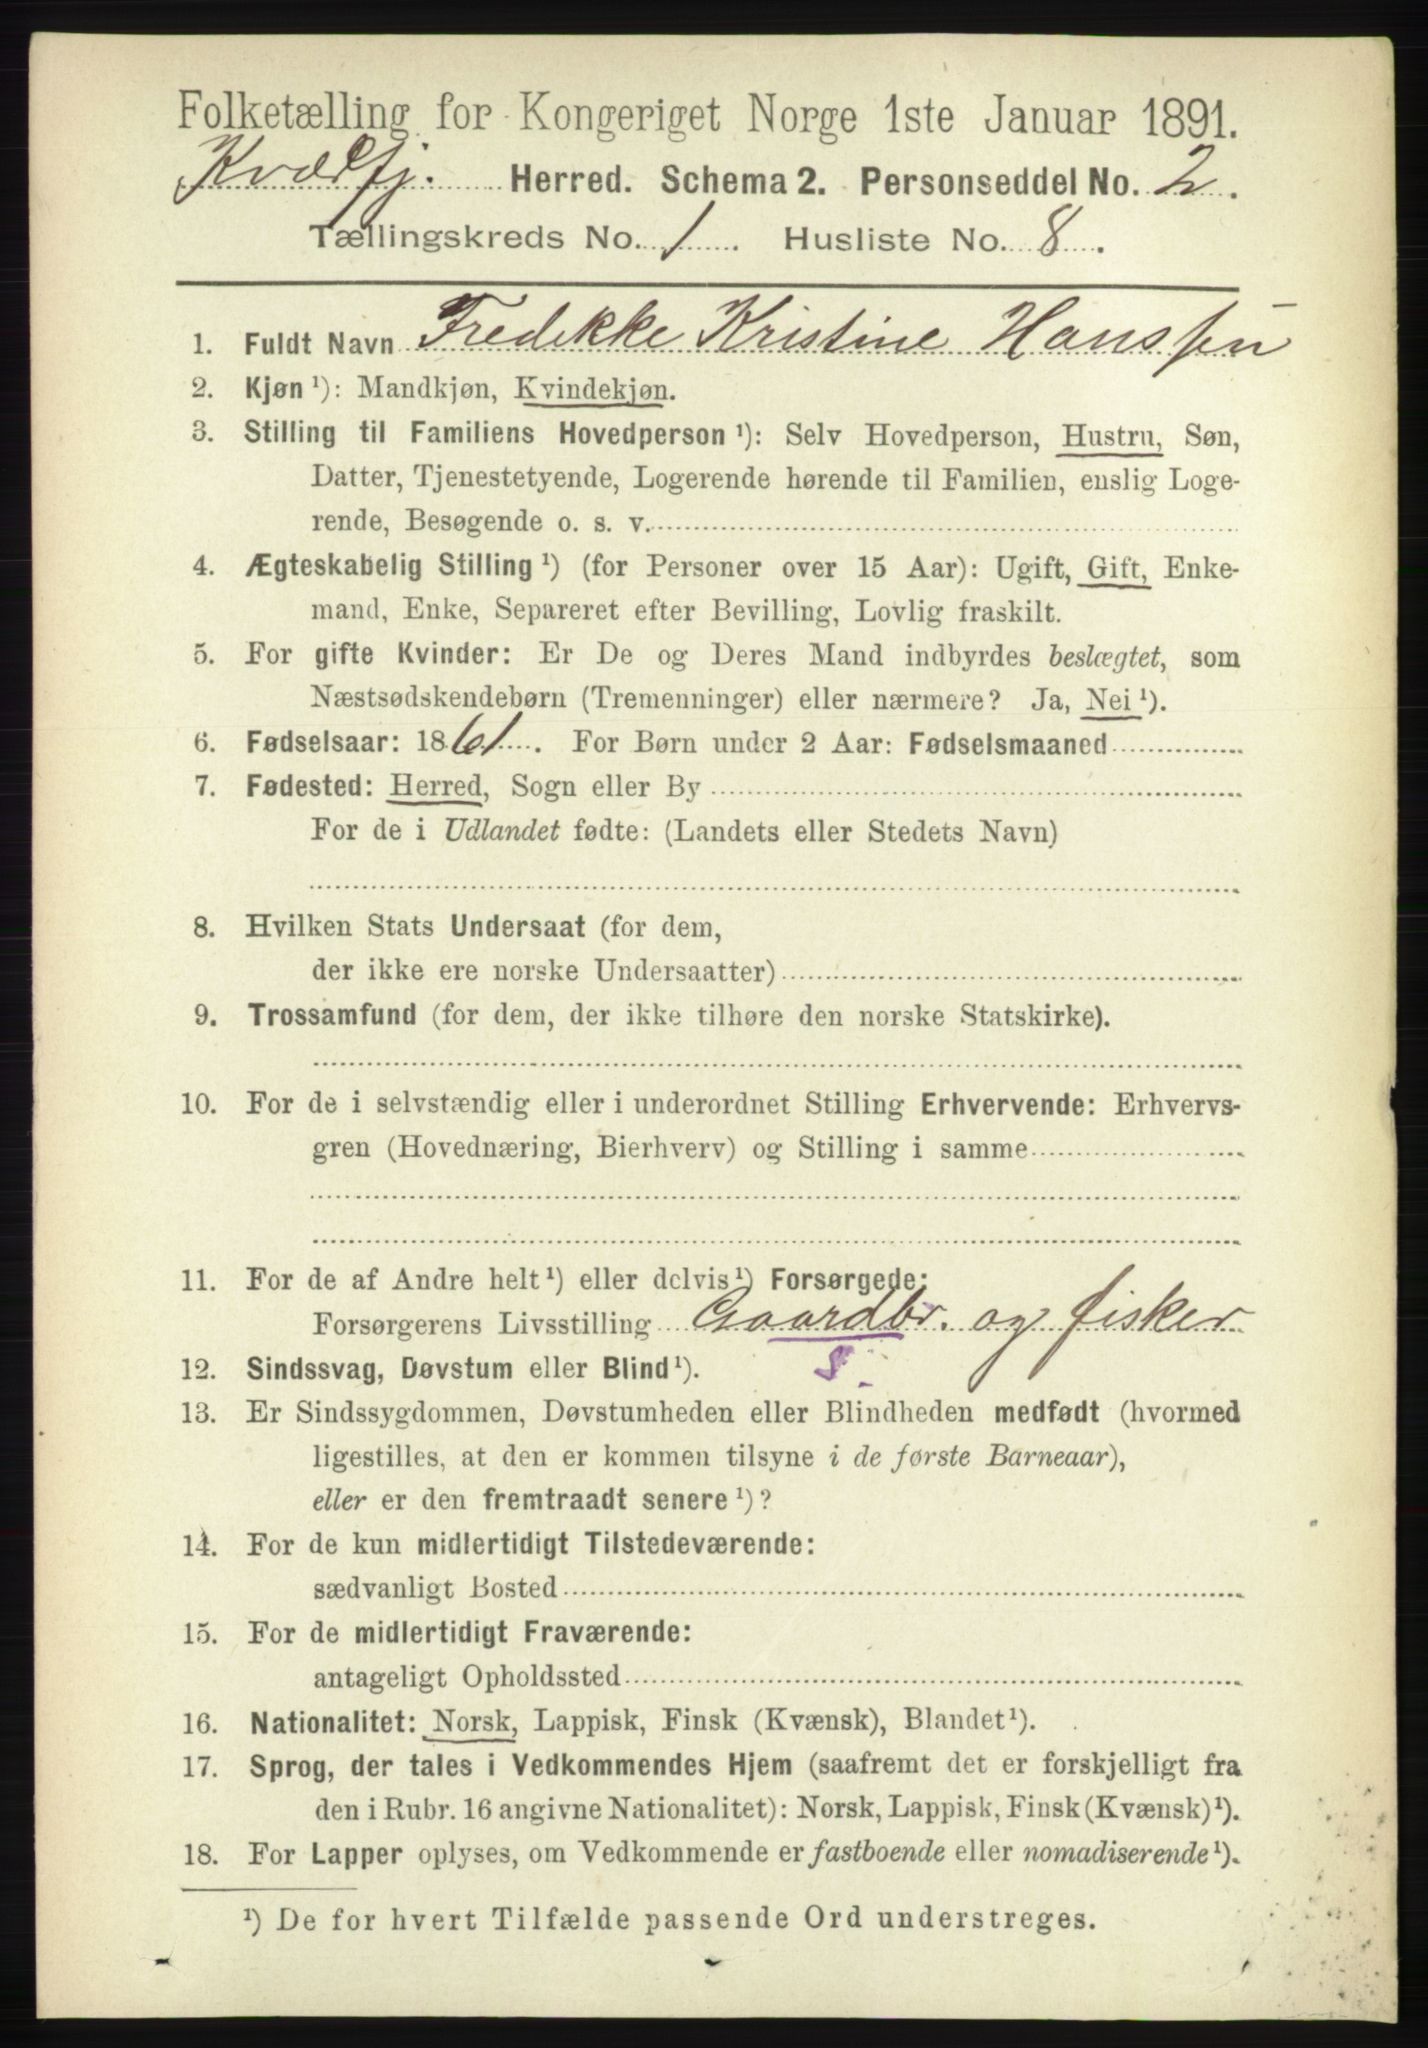 Folketælling for Kongeriget Norge 1ste Januar 1891.
Kvædfj. Herred. Schema 2. Personseddel No. 2.
Tællingskreds No. 1. Husliste No. 8.
1. Fuldt Navn Fredrikke Kristine Hanssen
2. Kjøn ¹): Mandkjøn, Kvindekjøn.
3. Stilling til Familiens Hovedperson ¹): Selv Hovedperson, Hustru, Søn,
Datter, Tjenestetyende, Logerende hørende til Familien, enslig Loge-
rende, Besøgende o. s. v.
4. Ægteskabelig Stilling ¹) (for Personer over 15 Aar): Ugift, Gift, Enke-
mand, Enke, Separeret efter Bevilling, Lovlig fraskilt.
5. For gifte Kvinder: Er De og Deres Mand indbyrdes beslægtet, som
Næstsødskendebørn (Tremenninger) eller nærmere? Ja, Nei ¹).
6. Fødselsaar: 1861. For Børn under 2 Aar: Fødselsmaaned
7. Fødested: Herred, Sogn eller By
For de i Udlandet fødte: (Landets eller Stedets Navn)
8. Hvilken Stats Undersaat (for dem,
der ikke ere norske Undersaatter)
9. Trossamfund (for dem, der ikke tilhøre den norske Statskirke).
10. For de i selvstændig eller i underordnet Stilling Erhvervende: Erhvervs-
gren (Hovednæring, Bierhverv) og Stilling i samme
11. For de af Andre helt ¹) eller delvis ¹) Forsørgede:
Forsørgerens Livsstilling Gaardbr. og fisker
12. Sindssvag, Døvstum eller Blind ¹).
13. Er Sindssygdommen, Døvstumheden eller Blindheden medfødt (hvormed
ligestilles, at den er kommen tilsyne i de første Barneaar),
eller er den fremtraadt senere ¹)?
14. For de kun midlertidigt Tilstedeværende:
sædvanligt Bosted
15. For de midlertidigt Fraværende:
antageligt Opholdssted
16. Nationalitet: Norsk, Lappisk, Finsk (Kvænsk), Blandet ¹).
17. Sprog, der tales i Vedkommendes Hjem (saafremt det er forskjelligt fra
den i Rubr. 16 angivne Nationalitet): Norsk, Lappisk, Finsk (Kvænsk) ¹).
18. For Lapper oplyses, om Vedkommende er fastboende eller nomadiserende ¹).
¹) De for hvert Tilfælde passende Ord understreges.